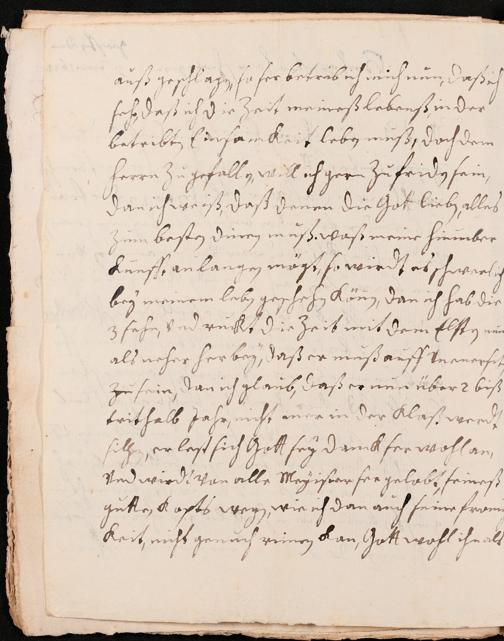 auß geschlagen, so ser betrib ich mich nun, daß ich
sehe, daß ich die Zeit meineß lebenß, in der
betribten Einsamkeit leben muß, doch dem
herrn zu gefallen, will ich gern zu friden sein,
dan ich weiß, daß denen die Gott lieben, alles
zum besten dinen muß. waß meine hinüber
kunfft an langen mögt, so wirdt es schwerlich
bey meinem leben geschehen könen, dan ich hab die
zsehn, und ruckt die Zeit mit dem Elsten nun
alß neher herbey, daß er muß auff
zu sein, dan ich glaub, daß er nun über 2 biß
trithalb Jahr, nicht mer in der Klaß werdt
sitzen, er lest sich Gott sey danck ser wohl an,
und wirdt von alle Meyister ser gelobt, seineß
gutten Kopfs wegen, wie ich dan auch seine from
keit, nicht genuch rümen kan, Gott wohl ihn alß